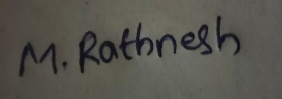 M. Rathnesh